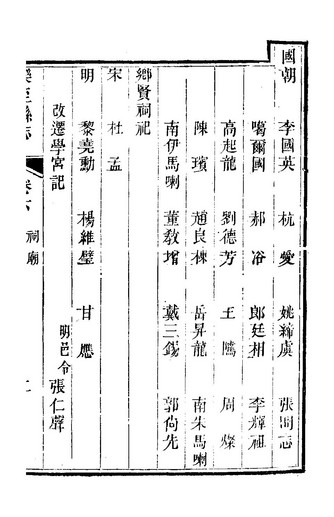 國朝 李國英 杭愛 姚締虞 張問志
噶爾國 郝浴 郎廷相 李輝祖
高起龍 劉德芳 王隲 周燦
陳璸 趙良棟 岳昇龍 南朱馬喇
南伊馬喇 董敎增 戴三錫 郭尙先
鄉賢祠祀
宋 杜孟
明 黎堯勳 楊維璧 甘應
改遷學宮記 明邑令張仁聲
樂至縣志 卷 祠廟